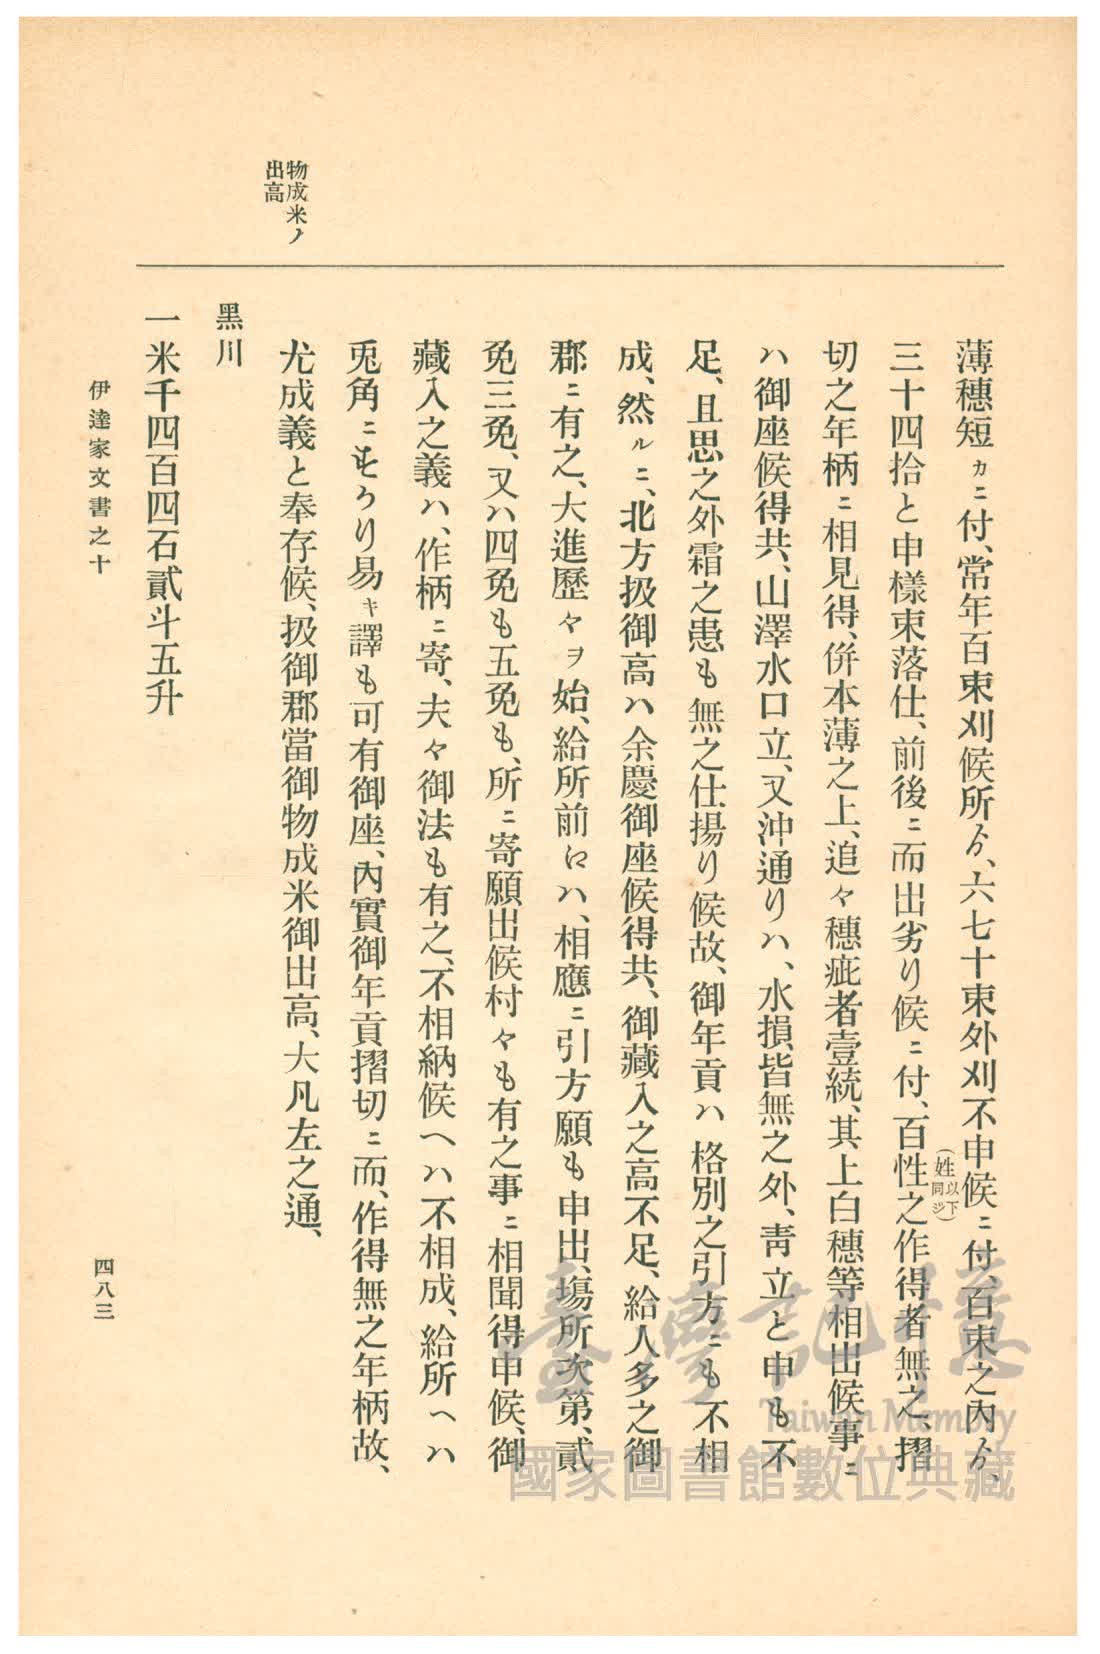 物成米ノ
出高
薄穗短カニ付、常年百束刈候所ゟ、六七十束外刈不申候ニ付、百束之內ゟ、
三十四拾と申樣束落仕、前後ニ而出劣り候ニ付、百性之作得者無之、摺
(姓以下同ジ)
切之年柄ニ相見得、併本薄之上、追々穗疵者壹統、其上白穗等相出候事ニ
ハ御座候得共、山澤水口立、又沖通りハ、水損皆無之外、靑立と申も不
足、且思之外霜之患も無之仕揚り候故、御年貢ハ格別之引方ニも不相
成、然ルニ、北方扱御高ハ余慶御座候得共、御藏入之高不足、給人多之御
郡ニ有之、大進歷々ヲ始、給所前ゟハ、相應ニ引方願も申出、場所次第、貳
免三免、又ハ四免も五免も、所ニ寄願出候村々も有之事ニ相聞得申候、御
藏入之義ハ、作柄ニ寄、夫々御法も有之、不相納候ヘハ不相成、給所ヘハ
兎角ニむつり易キ譯も可有御座、內實御年貢摺切ニ而、作得無之年柄故、
尤成義と奉存候、扱御郡當御物成米御出高、大凡左之通、
黑川
一米千四百四石貳斗五升
伊達家文書之十
四八三
臺灣記憶
Taiwan Memory
國家圖書館數位典藏